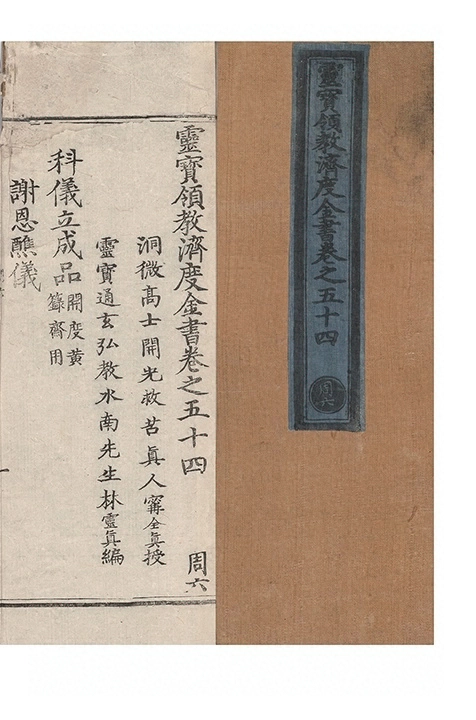 靈寶領教濟度金書卷之五十四
周六
靈寶領教濟度金書卷之五十四
周六
洞微高士開光救苦眞人甯全眞授
靈寶通玄弘教水南先生林靈眞編
科儀立成品開度黃
籙齋用
謝恩醮儀